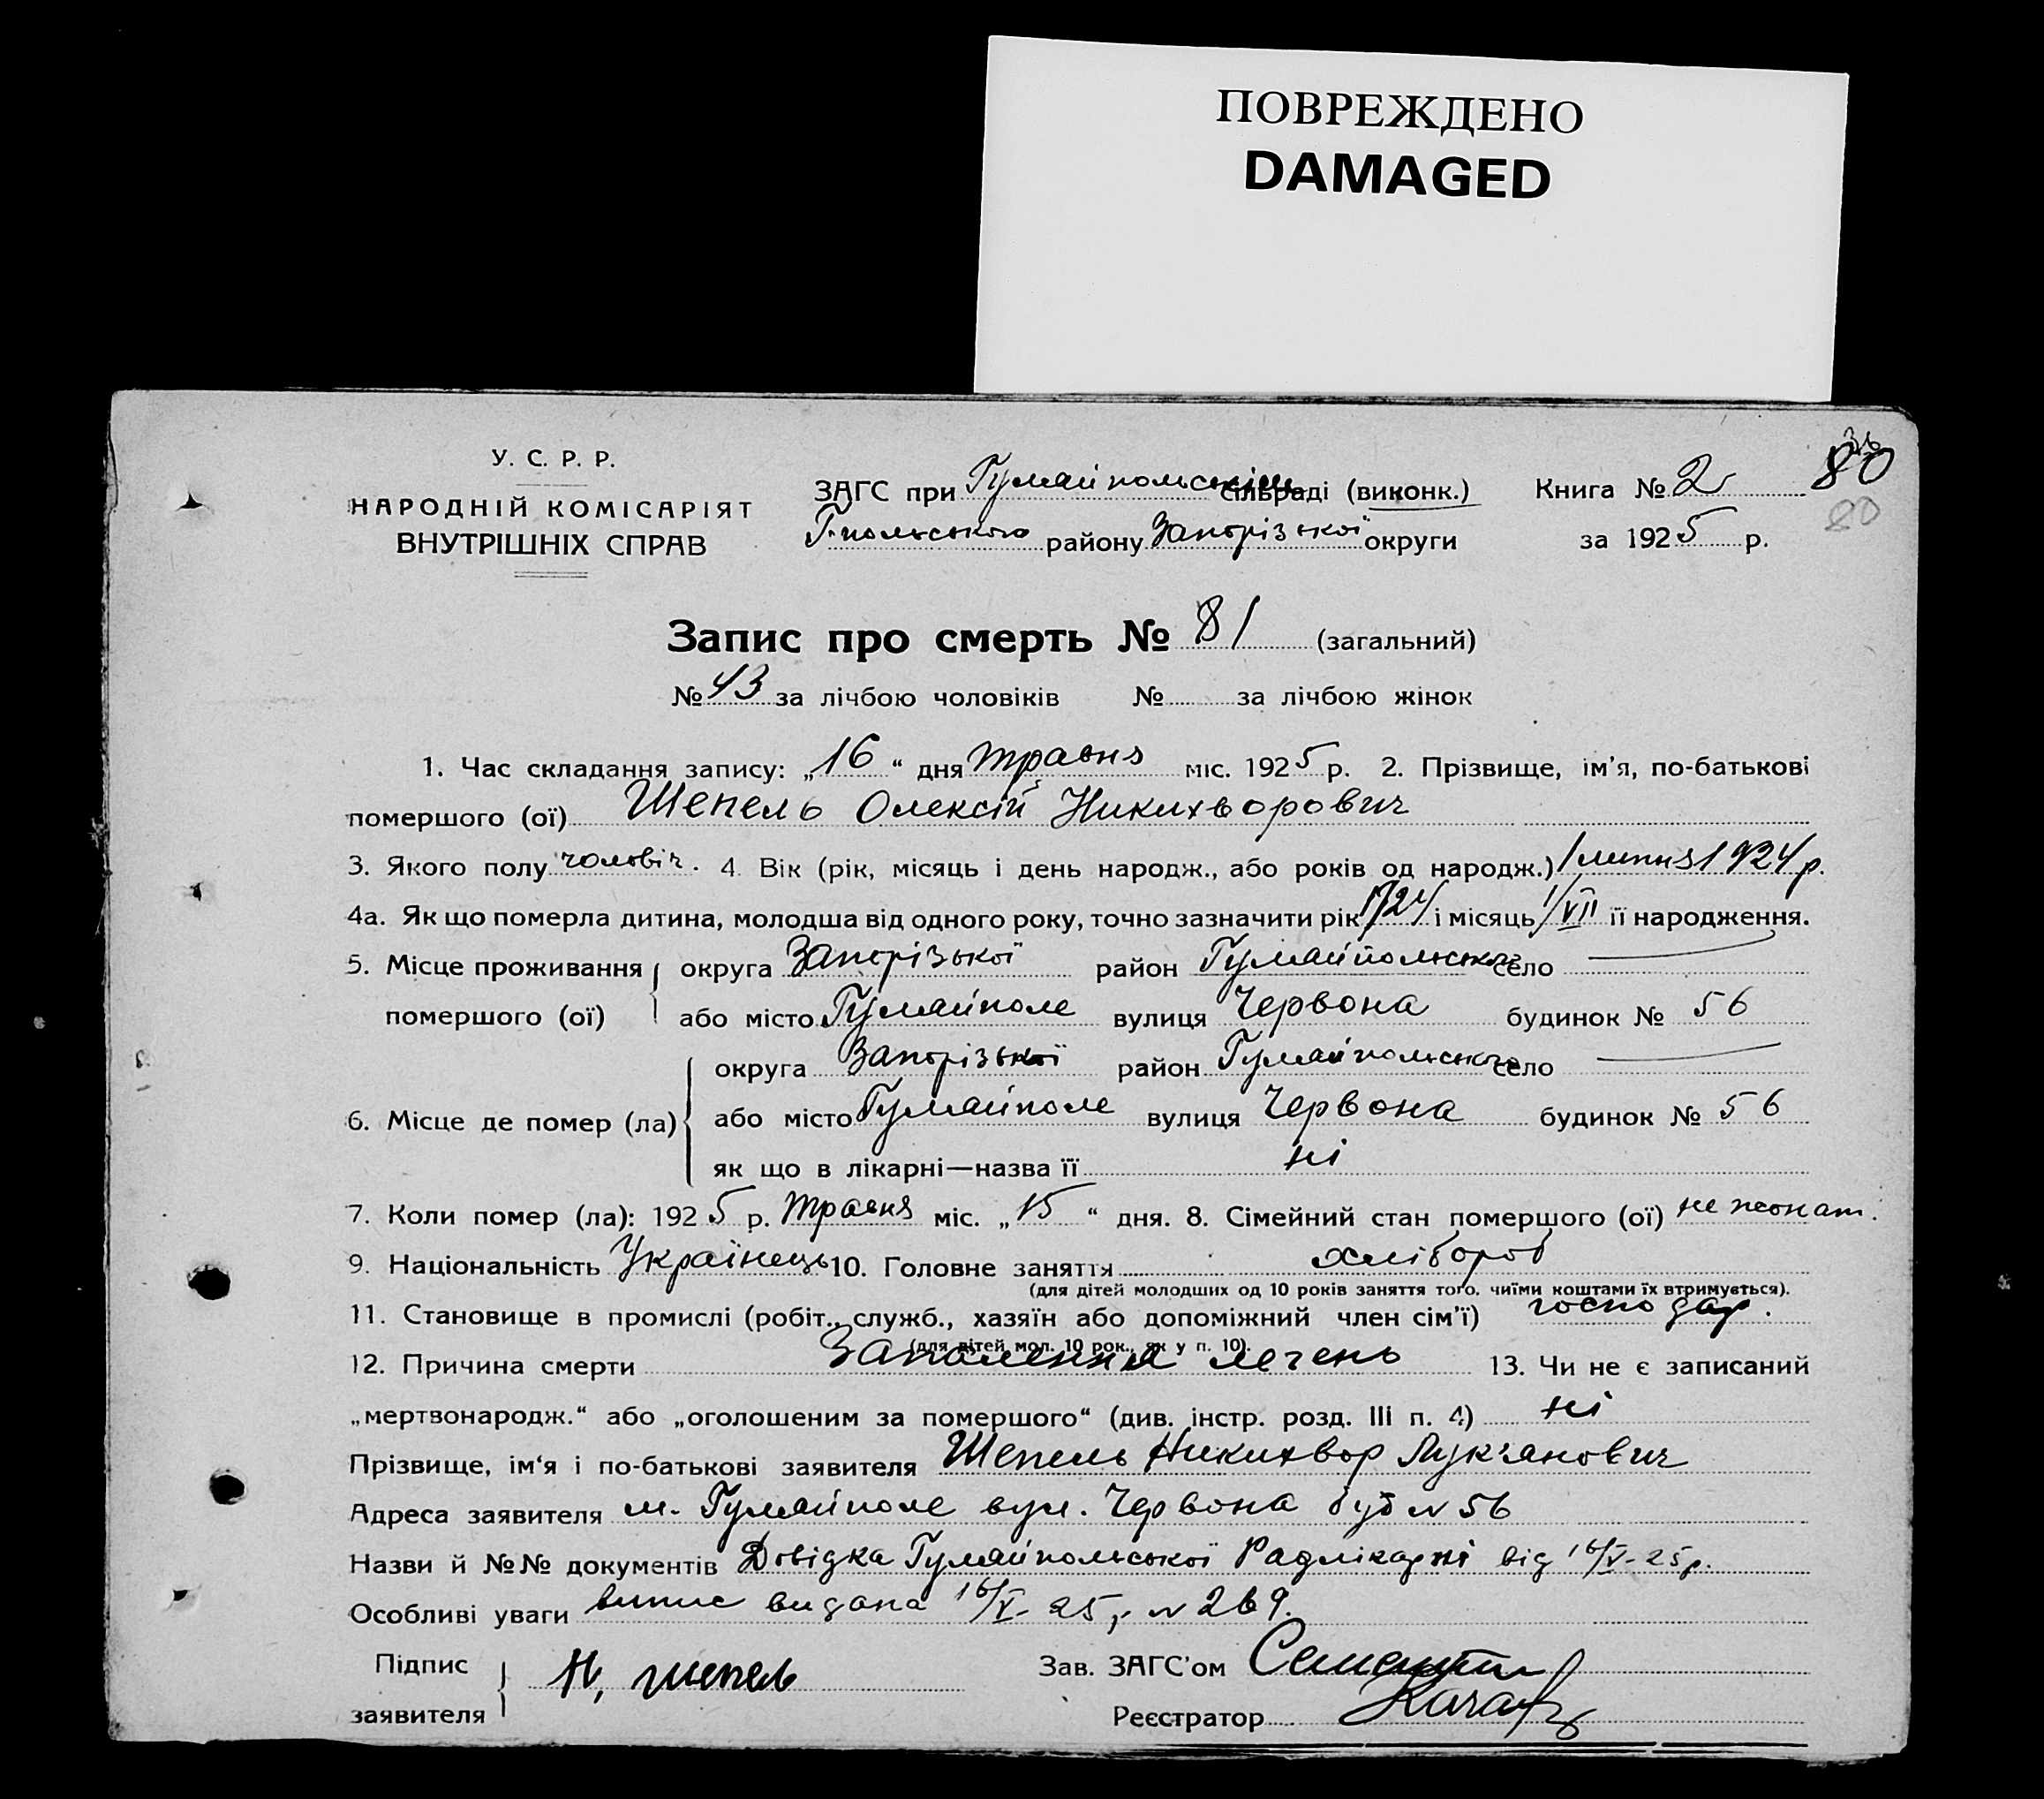 ПОВРЕЖДЕНО
DAMAGED
У. С. Р. Р.
НАРОДНІЙ КОМІСАРІЯТ
ВНУТРІШНІХ СПРАВ
ЗАГС при Гумайпольськім сільраді (виконк.)
Г-польського району Запорізької округи
Книга № 2 80
80
за 1925 р.
Запис про смерть № 81 (загальний)
№ 43 за лічбою чоловіків № за лічбою жінок
1. Час складання запису: „16“ дня травня міс. 1925 р. 2. Прізвище, ім’я, по-батькові
помершого (ої) Шепель Олексій Никихворович
3. Якого полу чоловіч. 4. Вік (рік, місяць і день народж., або років од народж.) 1 липня 1924 р.
4а. Як що померла дитина, молодша від одного року, точно зазначити рік 1924 і місяць 1/VII її народження.
5. Місце проживання помершого (ої) округа Запорізької район Гумайпольського село —
або місто Гумайполе вулиця Червона будинок № 56
6. Місце де помер (ла) округа Запорізької район Гумайпольського село —
або місто Гумайполе вулиця Червона будинок № 56
як що в лікарні—назва її ні
7. Коли помер (ла): 1925 р. травня міс. „15“ дня. 8. Сімейний стан помершого (ої) не жонат.
9. Національність Українець 10. Головне заняття хлібороб
(для дітей молодших од 10 років заняття того, чиїми коштами їх втримується).
11. Становище в промислі (робіт., служб., хазяїн або допоміжний член сім’ї) господар.
(для дітей мол. 10 рок., як у п. 10).
12. Причина смерти Запалення легень 13. Чи не є записаний
„мертвонародж.“ або „оголошеним за помершого“ (див. інстр. розд. III п. 4) ні
Прізвище, ім‘я і по-батькові заявителя Шепель Никихвор Лук’янович
Адреса заявителя м. Гумайполе вул. Червона буд № 56
Назви й №№ документів Довідка Гумайпольської Радлікарні від 16/V-25р.
Особливі уваги випис видана 16/V-25 р. № 269.
Підпис заявителя Н. шепель
Зав. ЗАГС’ом
Реєстратор